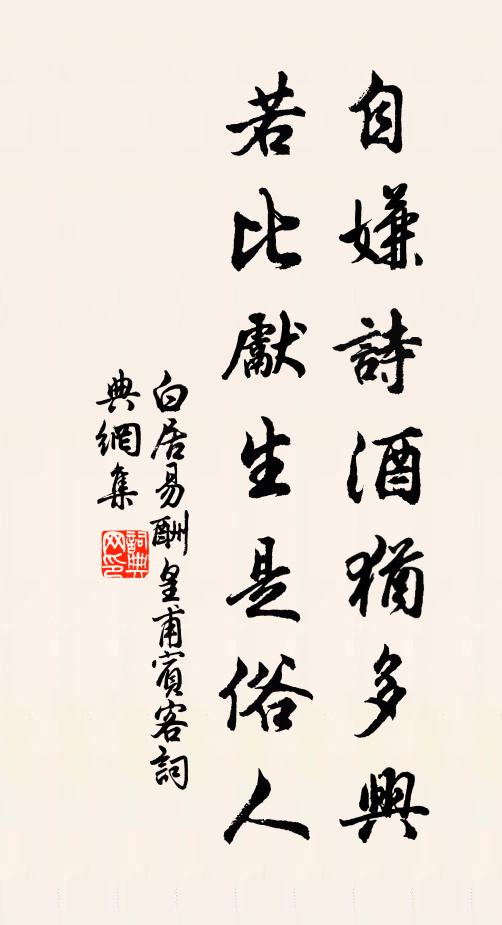 自嫌詩酒猶多興
若比獻生是俗人
白居易酬皇甫賓客詞
典網集
詞典
网印